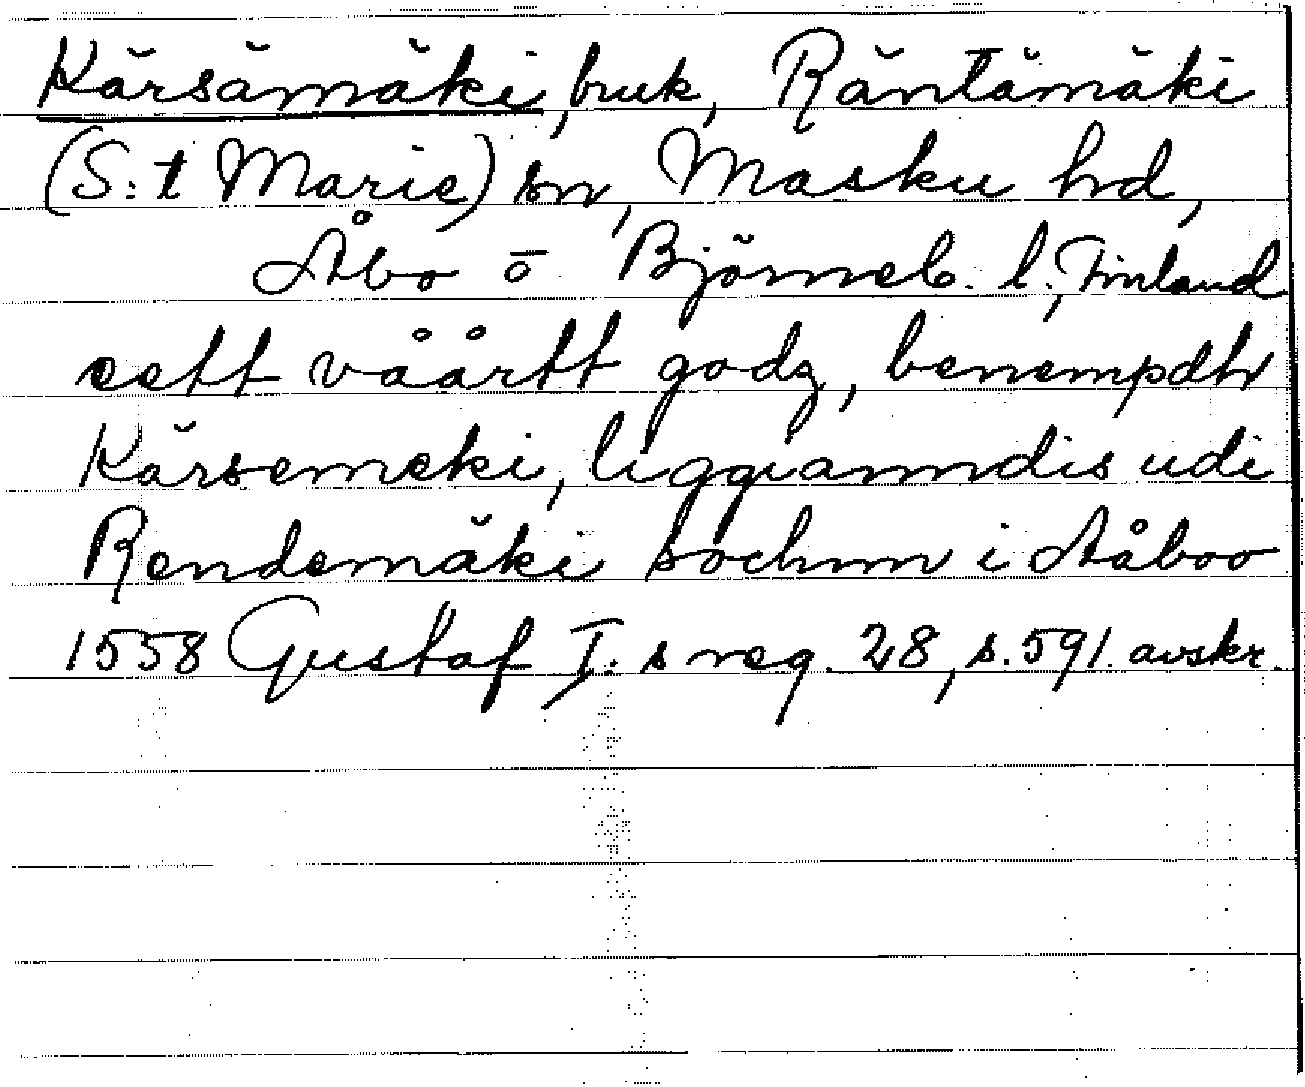 Kärsämäki, bruk, Räntämäki
(S:t Marie) sn, Masku hd,
Åbo o Björneb. l., Finland
eett våårtt godz, benempdh
Kärsemeki, liggianndis udi
Rendemäki sochnn i Aåboo
1558 Gustaf I:s reg. 28, s. 591. avskr.